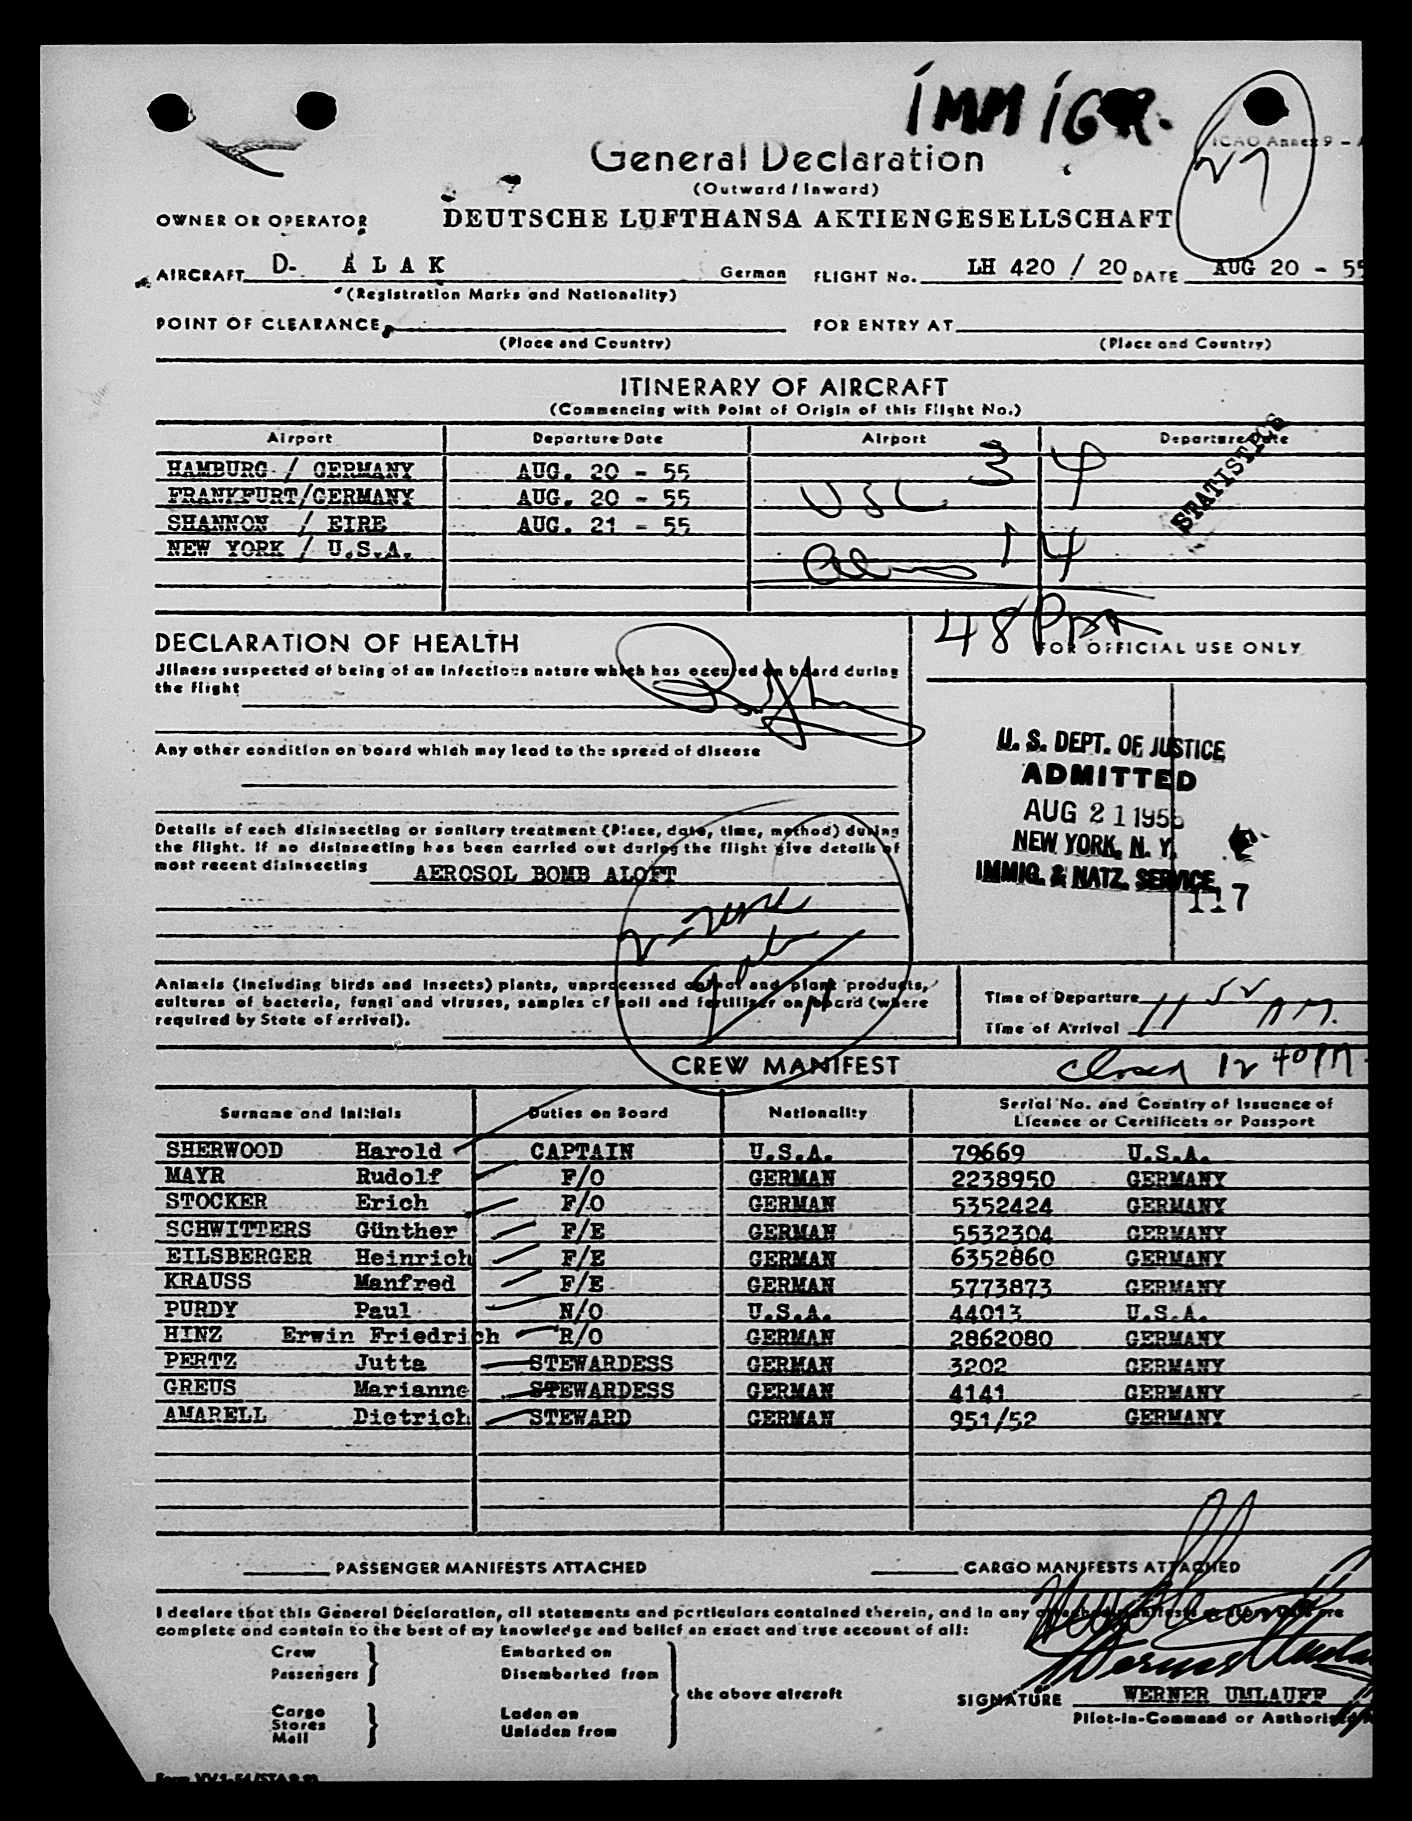 IMMIGR.
ICAO Annex 9 - A
27
General Declaration
(Outward / Inward)
OWNER OR OPERATOR DEUTSCHE LUFTHANSA AKTIENGESELLSCHAFT
AIRCRAFT D- A L A K German FLIGHT No. LH 420 / 20 DATE AUG 20 - 55
(Registration Marks and Nationality)
POINT OF CLEARANCE FOR ENTRY AT
(Place and Country) (Place and Country)
ITINERARY OF AIRCRAFT
(Commencing with Point of Origin of this Flight No.)
Airport Departure Date Airport Departure Date
HAMBURG / GERMANY AUG. 20 - 55
FRANKFURT/GERMANY AUG. 20 - 55
SHANNON / EIRE AUG. 21 - 55
NEW YORK / U.S.A.
USC 34
STATISTICS
14
48
DECLARATION OF HEALTH
FOR OFFICIAL USE ONLY
Jllness suspected of being of an infectious nature which has occured on board during
the flight
Any other condition on board which may lead to the spread of disease
U. S. DEPT. OF JUSTICE
ADMITTED
AUG 21 1955
NEW YORK, N. Y.
IMMIG. & NATZ. SERVICE
117
Details of each disinsecting or sanitary treatment (Place, date, time, method) during
the flight. If no disinsecting has been carried out during the flight give details of
most recent disinsecting AEROSOL BOMB ALOFT
Animals (including birds and insects) plants, unprocessed animal and plant products,
cultures of bacteria, fungi and viruses, samples of soil and fertilizer on board (where
required by State of arrival).
Time of Departure
Time of Arrival 11 52 AM.
Closed 12 40 PM.
CREW MANIFEST
Surname and Initials Duties on Board Nationality Serial No. and Country of Issuance of
Licence or Certificate or Passport
SHERWOOD Harold CAPTAIN U.S.A. 79669 U.S.A.
MAYR Rudolf F/O GERMAN 2238950 GERMANY
STOCKER Erich F/O GERMAN 5352424 GERMANY
SCHWITTERS Günther F/E GERMAN 5532304 GERMANY
EILSBERGER Heinrich F/E GERMAN 6352860 GERMANY
KRAUSS Manfred F/E GERMAN 5773873 GERMANY
PURDY Paul N/O U.S.A. 44013 U.S.A.
HINZ Erwin Friedrich R/O GERMAN 2862080 GERMANY
PERTZ Jutta STEWARDESS GERMAN 3202 GERMANY
GREUS Marianne STEWARDESS GERMAN 4141 GERMANY
AMARELL Dietrich STEWARD GERMAN 951/52 GERMANY
PASSENGER MANIFESTS ATTACHED CARGO MANIFESTS ATTACHED
I declare that this General Declaration, all statements and particulars contained therein, and in any attached manifests are
complete and contain to the best of my knowledge and belief an exact and true account of all:
Crew Embarked on
Passengers Disembarked from
the above aircraft
Cargo Laden on
Stores
Mail Unladen from
SIGNATURE WERNER UMLAUFF
Pilot-in-Command or Authorised